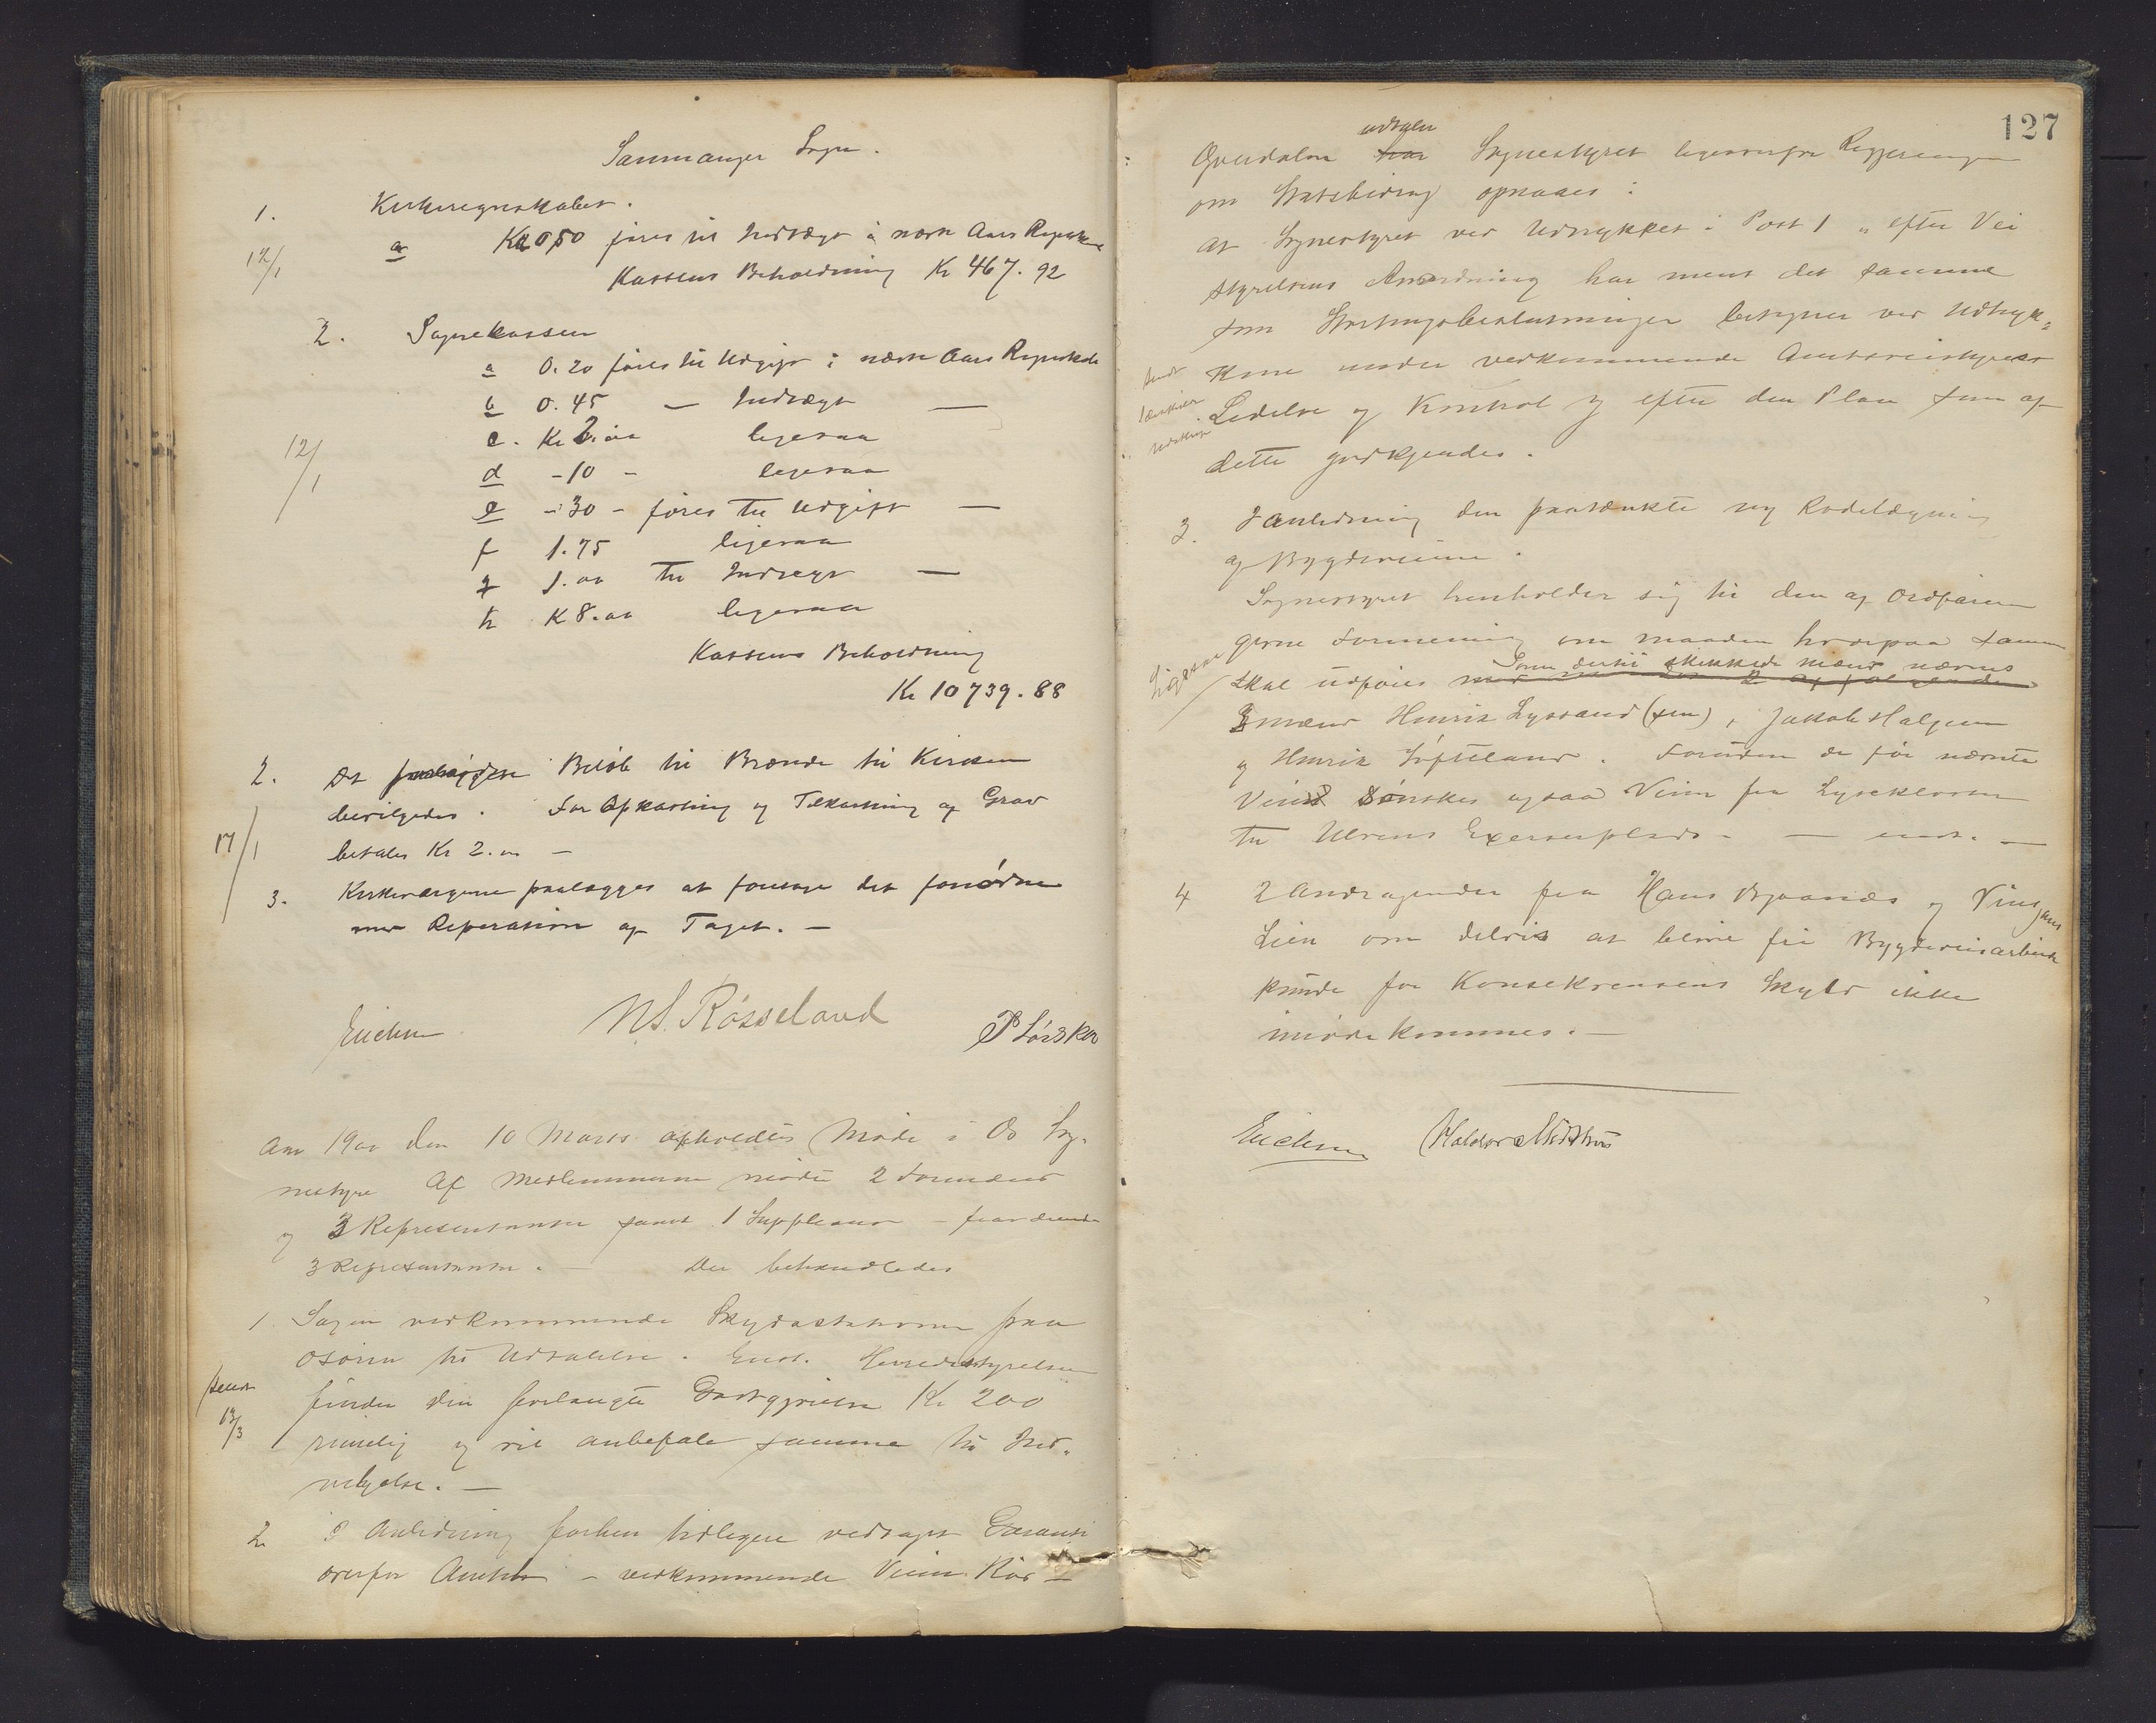 Samnanger Sogn.
1. Kirkeregnskabet.
12/1 a Kr 0,50 føres til Indtægt i næste Aars Regnskab
Kassens Beholdning Kr 467.92
2. Sognekassen
a 0.20 føres til Udgift i næste Aars Regnskab
b 0.45 — Indtægt —
12/1 c. Kr 2.00 ligesaa
d - 10 - ligesaa
e - 30 - føres til Udgift —
f 1.75 ligesaa
g 1.00 til Indtægt —
h K 8.00 ligesaa
Kassens Beholdning
Kr 10739.88
2. Det Beløb til Brænde til Kirken
bevilgedes. For Opkastning og Tilkastning af Grav
17/1 betales Kr 2.00 —
3. Kirkeværgerne paalægges at foretage det fornødne
med Reperation af Taget. —
Erichsen N S. Røsseland P Sørskar
Aar 1900 den 10 Marts afholdtes Møde i Os Sog-
nestyre Af Medlemmerne mødte 2 Formænd
og 3 Representanter samt 1 Suppleant - fraværende
3 Representanter. — Der behandledes
1. Sagen vedkommende Skydsstationen paa
Osøren til Udtalelse. Enst. Herredsstyrelsen
Sendt finder den forlangte Godtgjørelse Kr 200
13/3 rimelig og vil anbefale samme til Ind-
vilgelse. —
2. I Anledning forhen tidligere vedtaget Garanti
overfor Amtet - vedkommende Veien Rød -
127
udtaler
Gverdalen har Sognestyret ligeoverfor Regjeringen
om Statsbidrag opnaaes:
At Sognestyret ved Udtrykket i Post 1 "efter Vei
styrelsens Anordning har ment det samme
som Stortingsbeslutninger betegner ved Udtryk-
Sendt kene under vedkommende Amtsveistyres
Ledelse og Kontrol og efter den Plan som af
Udskrift dette godkjendes.
3. I Anledning den paatænkte ny Rodelægning
af Bygdeveiene.
Sognestyret henholder sig til den af Ordføreren
gjorte Formening om maaden hvorpaa samme
Ligesaa Som dertil skikkede mænd nævnes
skal udføres med
3 mænd Henrik Lyssand (sen), Jakob Halgjem
og Henrik Søfteland. Foruden de før nævnte
Veie ønskes ogsaa Veien fra Lysekloster
til Ulvens Exerserplads - — enst. —
4 2 Andragender fra Hans Bjaanæs og Vingjans
Lien om delvis at blive fri Bygdeveisarbeide
kunde for Konsekvensens Skyld ikke
imødekommes. —
Erichsen Haldor Midthus